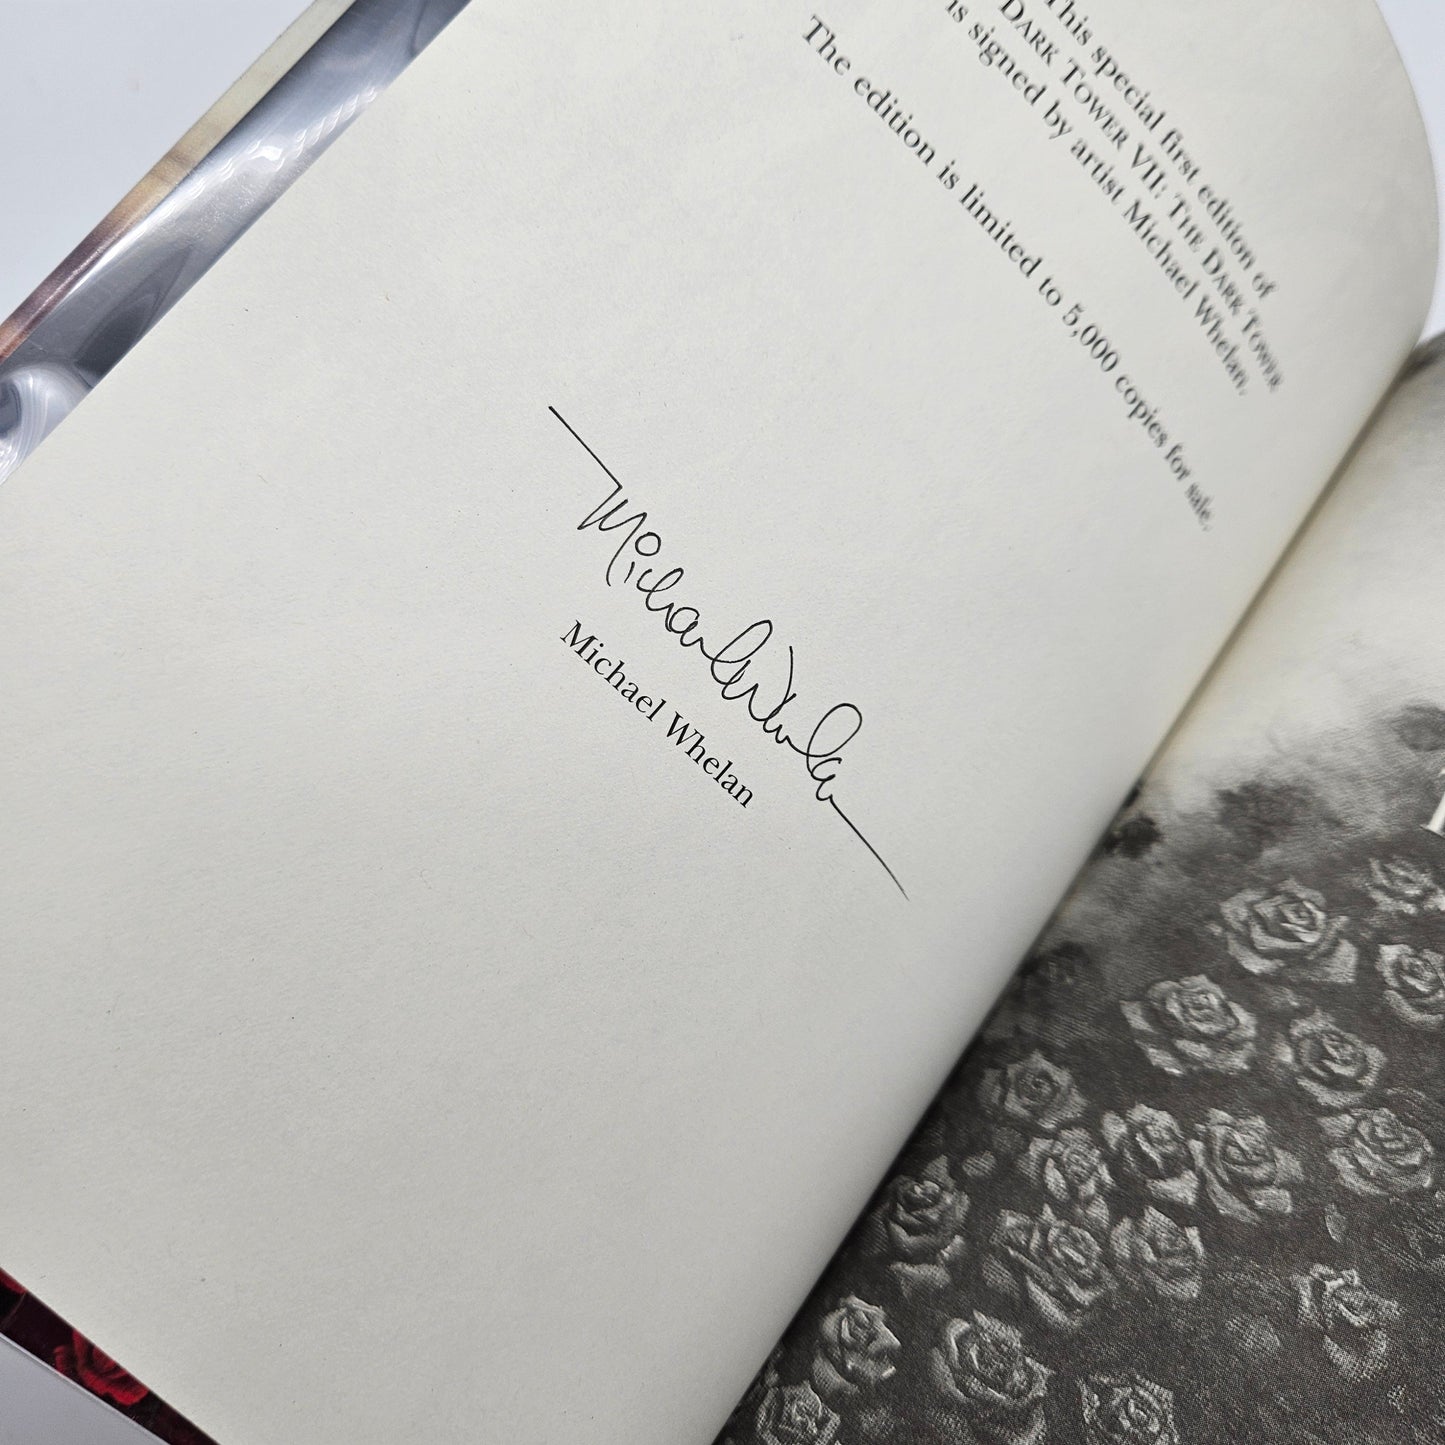 This special first edition of
DARK TOWER VII: THE DARK TOWER
is signed by artist Michael Whelan.
The edition is limited to 5,000 copies for sale.
Michael Whelan
Michael Whelan